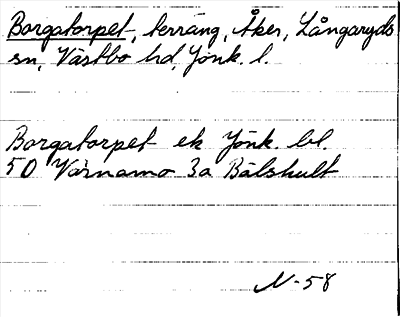 Borgatorpet, terräng, Åker, Långaryds
sn, Västbo hd, Jönk. l.
Borgatorpet ek Jönk. bl.
50 Värnamo 3a Bälshult
N-58